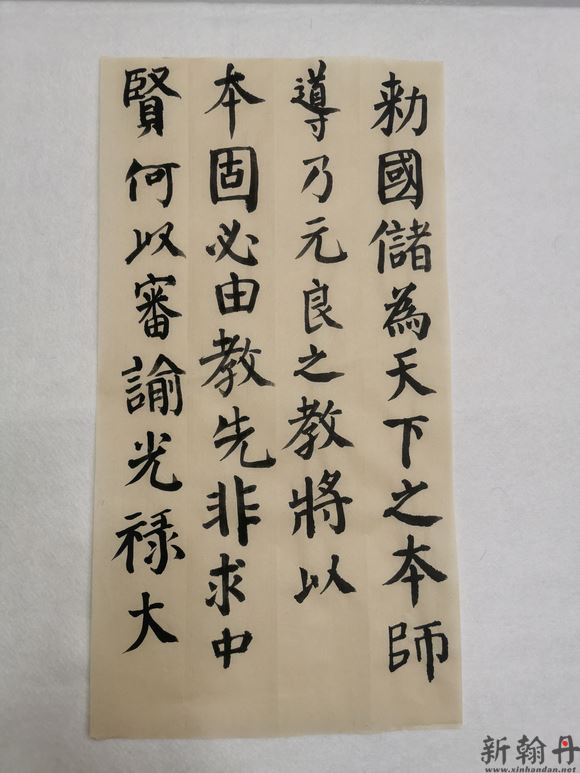 勑國儲為天下之本師
導乃元良之教將以
本固必由教先非求中
賢何以審諭光禄大
新翰丹
www.xinhandan.net